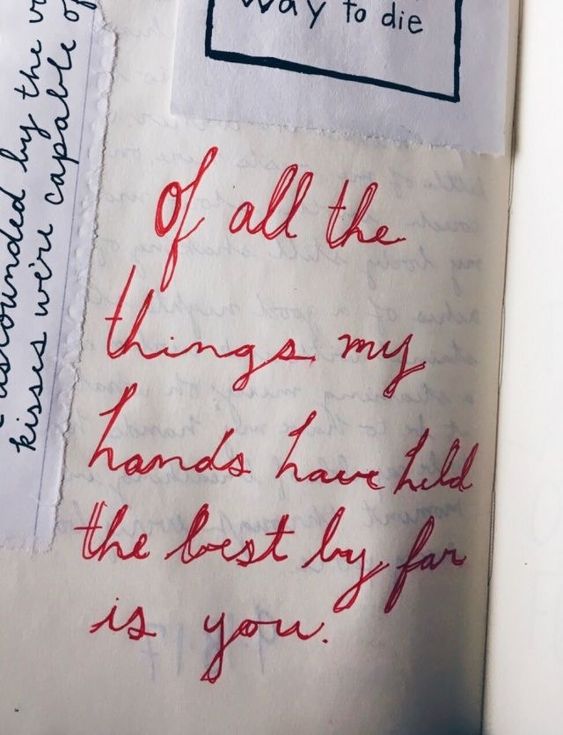 way to die
astounded by the
kisses we're capable of
Of all the
things my
hands have held
the best by far
is you.